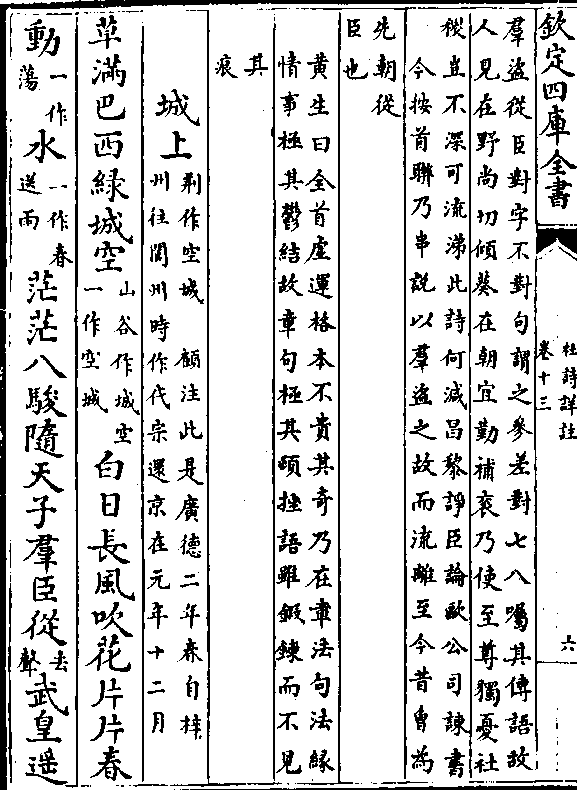 欽定四庫全書
杜詩詳註
卷十三
六
羣盜從臣對字不對句謂之參差對七八囑其傳語故
人見在野尚切傾葵在朝宜勤補衮乃使至尊獨憂社
稷豈不深可流涕此詩何減昌黎諍臣論歐公司諫書
今按首聯乃串説以羣盜之故而流離至今昔曾為
先朝從
臣也
黄生曰全首虚運格本不貴其奇乃在章法句法緣
情事極其鬱結故章句極其頓挫語雖鍛鍊而不見
其
痕
城上荆作空城 顧注此是廣德二年春自梓
州往閬州時作代宗還京在元年十二月
草滿巴西緑城空山谷作城空
一作空城白日長風吹花片片春
動一作
蕩水一作春
送雨茫茫八駿隨天子羣臣從去
聲武皇遥